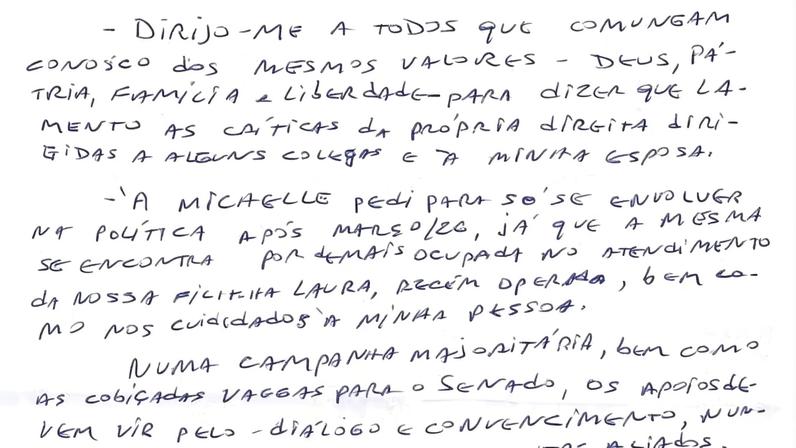 - DIRIJO-ME A TODOS QUE COMUNGAM
CONOSCO dos MESMOS VALORES - DEUS, PÁ-
TRIA, FAMÍLIA e LIBERDADE-PARA dizER QUE LA-
MENTO AS CRÍTICAS dA PRÓPRIA diREITA diRi-
GIDAS A ALGUNS COLEGAS E À MINHA ESPOSA.
-'A MICHELLE PEDI PARA SÓ SE ENVOLVER
NA POLÍTICA APÓS MARÇO/26, JÁ QUE A MESMA
SE ENCONTRA POR dEMAIS OCUPADA NO ATENdiMENTO
dA NOSSA FILHINHA LAURA, RECÉM OPERADA, bEM CO-
MO NOS CUIDADOS À MINHA PESSOA.
NUMA CAMPANHA MAJORITÁRIA, bEM COMO
AS CObiÇADAS VAGAS PARA O SENADO, OS APOIOS dE-
VEM VIR PELO -DIÁLOGO E CONVENCIMENTO, NUN-
ALIADOS.